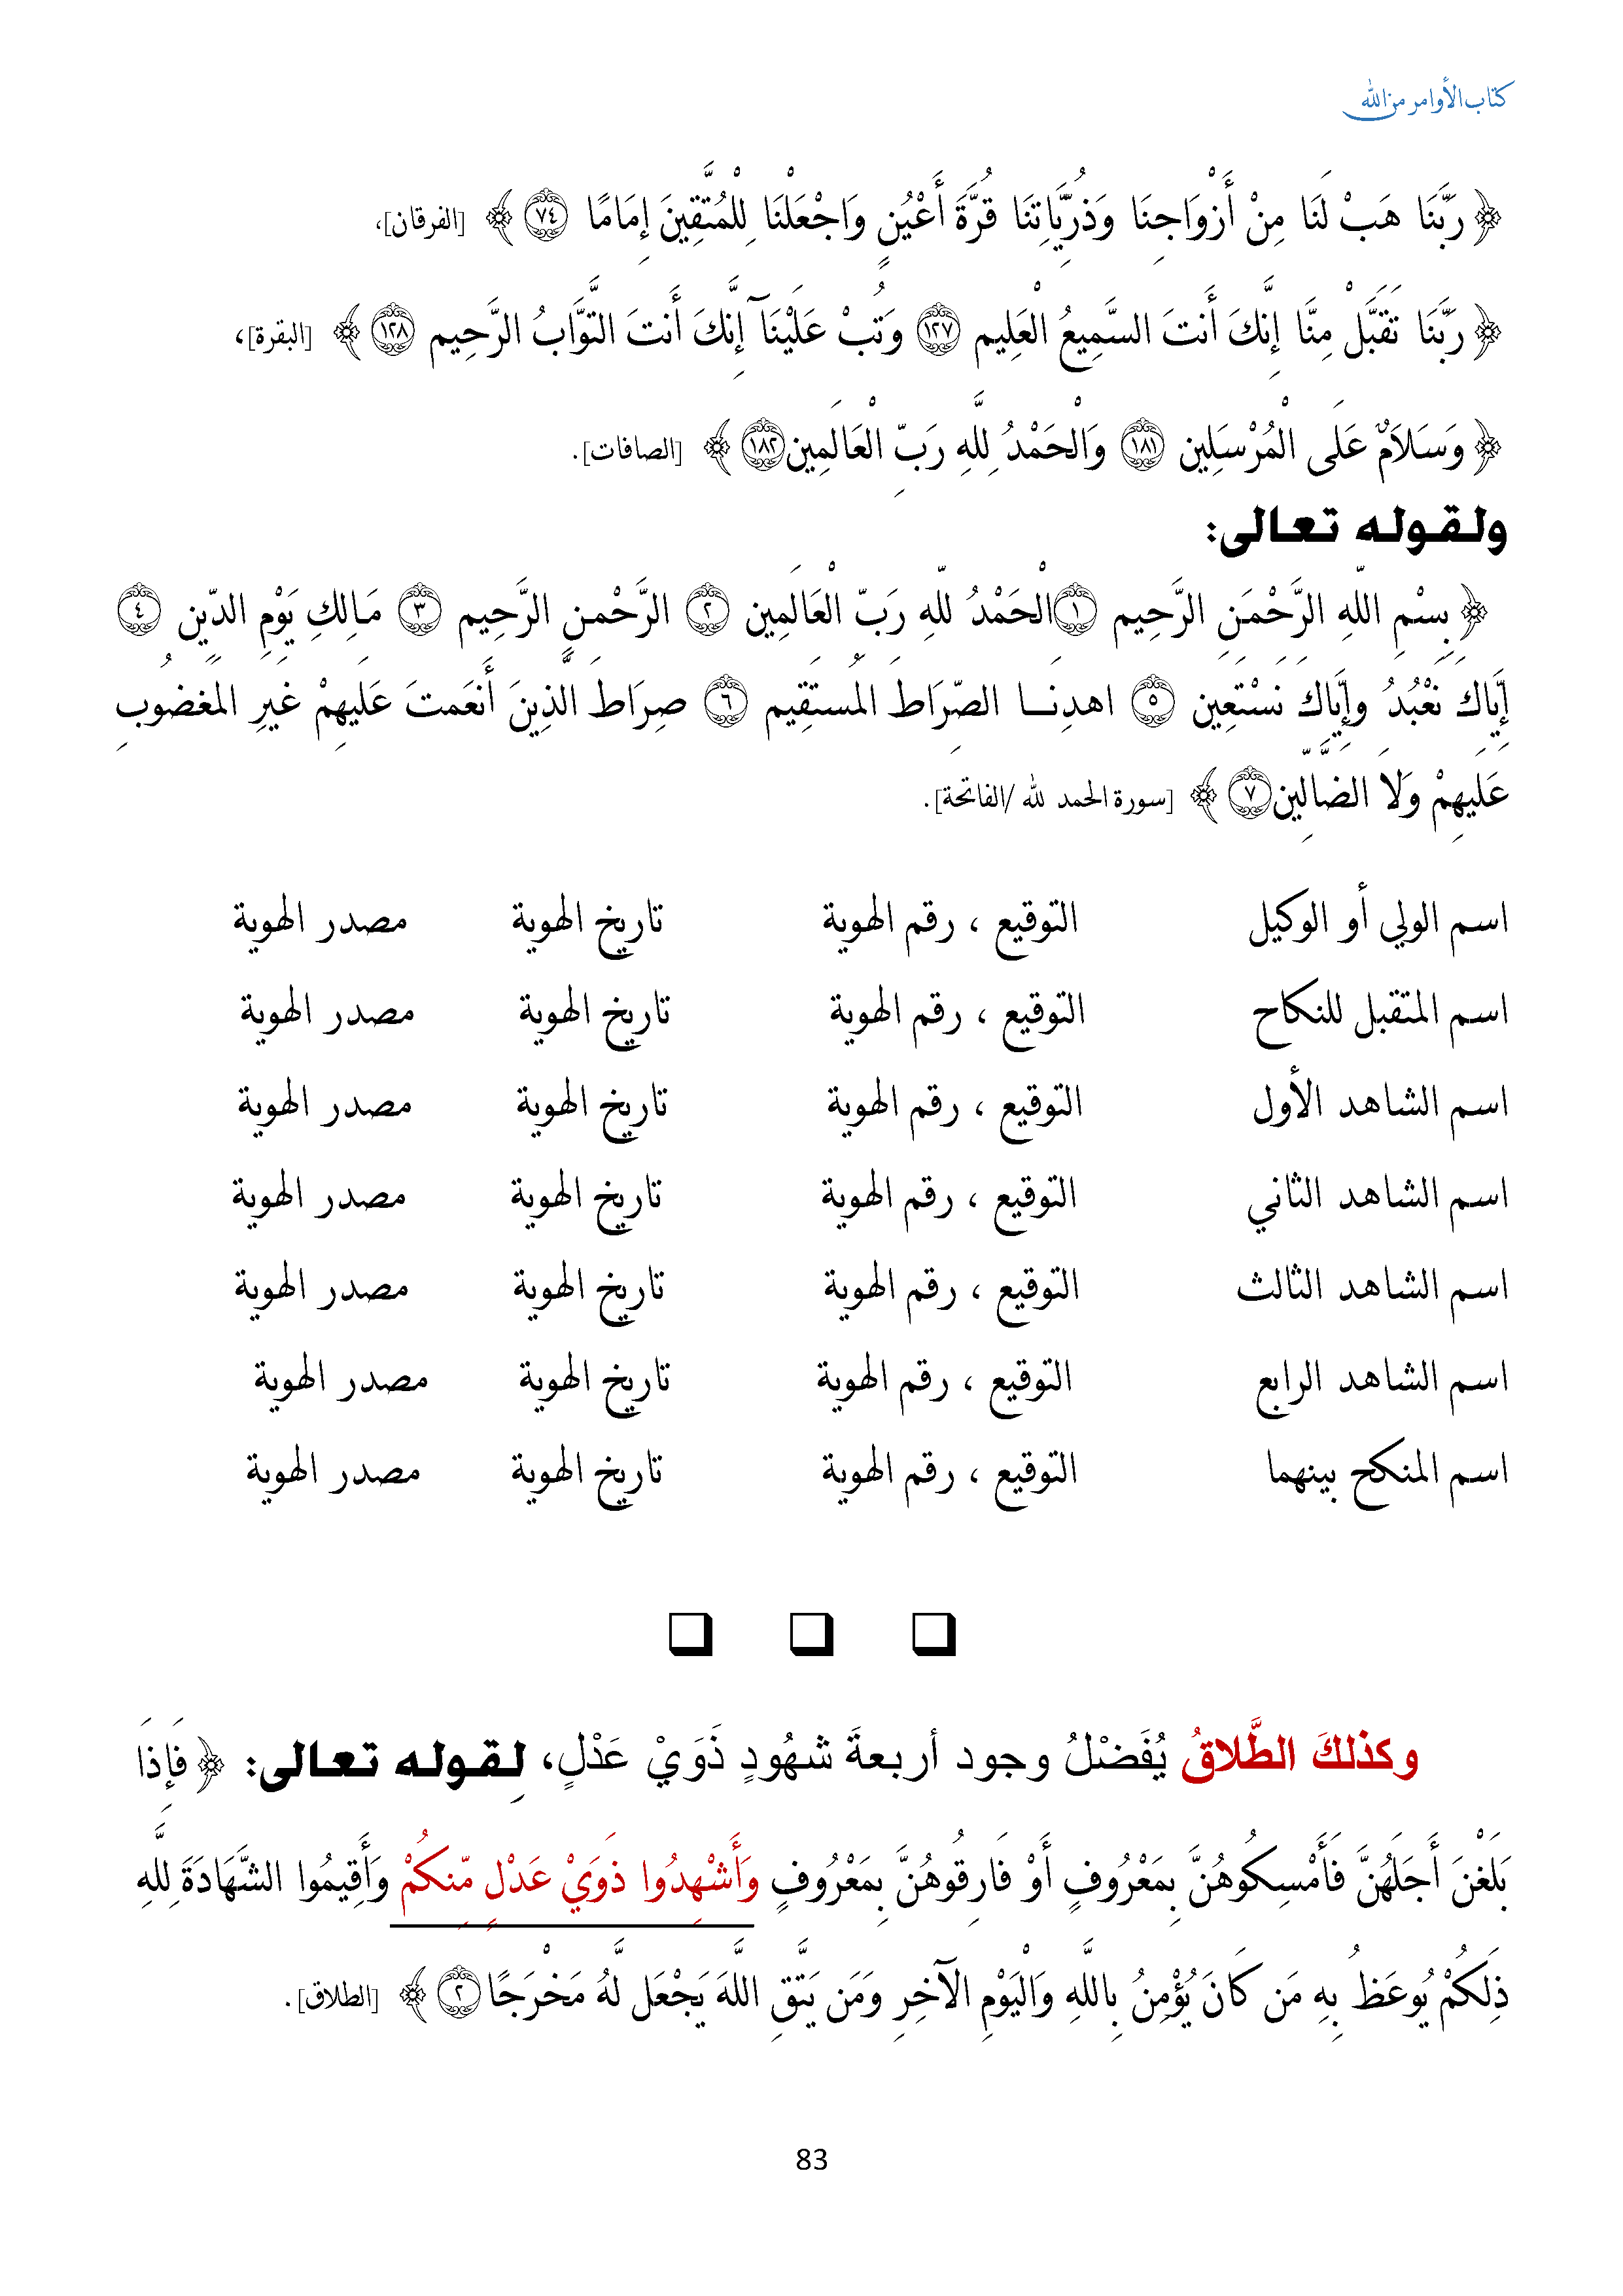 كتاب الأوامر من الله
﴿ رَبَّنَا هَبْ لَنَا مِنْ أَزْوَاجِنَا وَذُرِّيَّاتِنَا قُرَّةَ أَعْيُنٍ وَاجْعَلْنَا لِلْمُتَّقِينَ إِمَامًا ٧٤ ﴾ [الفرقان]،
﴿ رَبَّنَا تَقَبَّلْ مِنَّا إِنَّكَ أَنتَ السَّمِيعُ الْعَلِيم ١٢٧ وَتُبْ عَلَيْنَآ إِنَّكَ أَنتَ التَّوَّابُ الرَّحِيم ١٢٨ ﴾ [البقرة]،
﴿ وَسَلاَمٌ عَلَى الْمُرْسَلِين ١٨١ وَالْحَمْدُ لِلَّهِ رَبّ الْعَالَمِين ١٨٢ ﴾ [الصافات].
ولقوله تعالى:
﴿ بِسْمِ اللّهِ الرَّحْمَنِ الرَّحِيم ١ الْحَمْدُ للّهِ رَبّ الْعَالَمِين ٢ الرَّحْمنِ الرَّحِيم ٣ مَالِكِ يَوْمِ الدّين ٤
إِيَّاكَ نَعْبُدُ وإِيَّاكَ نَسْتَعِين ٥ اهدِنــا الصِّرَاطَ المُستَقِيم ٦ صِرَاطَ الَّذِينَ أَنعَمتَ عَلَيهِمْ غَيرِ المَغضُوبِ
عَلَيهِمْ وَلاَ الضَّالِّين ٧ ﴾ [سورة الحمد لله /الفاتحة].
اسم الولي أو الوكيل التوقيع ، رقم الهوية تاريخ الهوية مصدر الهوية
اسم المتقبل للنكاح التوقيع ، رقم الهوية تاريخ الهوية مصدر الهوية
اسم الشاهد الأول التوقيع ، رقم الهوية تاريخ الهوية مصدر الهوية
اسم الشاهد الثاني التوقيع ، رقم الهوية تاريخ الهوية مصدر الهوية
اسم الشاهد الثالث التوقيع ، رقم الهوية تاريخ الهوية مصدر الهوية
اسم الشاهد الرابع التوقيع ، رقم الهوية تاريخ الهوية مصدر الهوية
اسم المنكح بينهما التوقيع ، رقم الهوية تاريخ الهوية مصدر الهوية
❑ ❑ ❑
وكذلكَ الطَّلاقُ يُفَضْلُ وجود أربعةَ شهُودٍ ذَوَيْ عَدْلٍ، لِقوله تعالى: ﴿ فَإِذَا
بَلَغْنَ أَجَلَهُنَّ فَأَمْسِكُوهُنَّ بِمَعْرُوفٍ أَوْ فَارِقُوهُنَّ بِمَعْرُوفٍ وَأَشْهِدُوا ذَوَيْ عَدْلٍ مِّنكُمْ وَأَقِيمُوا الشَّهَادَةَ لِلَّهِ
ذَلِكُمْ يُوعَظُ بِهِ مَن كَانَ يُؤْمِنُ بِاللَّهِ وَالْيَوْمِ الآخِرِ وَمَن يَتَّقِ اللَّهَ يَجْعَل لَّهُ مَخْرَجًا ٢ ﴾ [الطلاق].
83